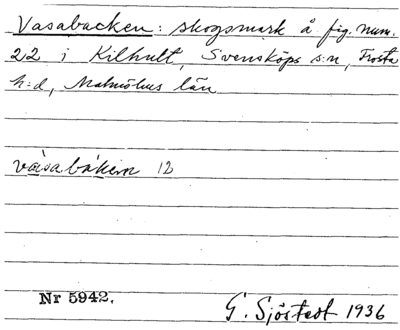 Vasabacken: skogsmark å fig. num.
22 i Kilhult, Svensköps s:n, Frosta
h:d, Malmöhus län
vàsabákėn 12
Nr 5942.
G. Sjöstedt 1936